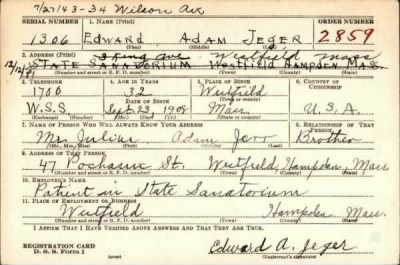 7/27/43-34 Wilson Ave
SERIAL NUMBER 1. NAME (Print) ORDER NUMBER
1306 EDWARD ADAM JEGER 2859
(First) (Middle) (Last)
2. ADDRESS (Print) King Ave. Westfield Mass
STATE SANATORIUM WESTFIELD HAMPDEN MASS.
(Number and street or R. F. D. number) (Town) (County) (State)
3. TELEPHONE 4. AGE IN YEARS 5. PLACE OF BIRTH 6. COUNTRY OF CITIZENSHIP
1700 32 Westfield
DATE OF BIRTH (Town or county)
W.S.S. Sept. 23 1908 Mass. U.S.A.
(Exchange) (Number) (Mo.) (Day) (Yr.) (State or country)
7. NAME OF PERSON WHO WILL ALWAYS KNOW YOUR ADDRESS 8. RELATIONSHIP OF THAT PERSON
Mr. Julius Adam Brother
(Mr., Mrs., Miss) (First) (Middle) (Last)
9. ADDRESS OF THAT PERSON
47 Pochassic St. Westfield, Hampden, Mass.
(Number and street or R. F. D. number) (Town) (County) (State)
10. EMPLOYER'S NAME
Patient in State Sanatorium
11. PLACE OF EMPLOYMENT OR BUSINESS
Westfield Hampden Mass.
(Number and street or R. F. D. number) (Town) (County) (State)
I AFFIRM THAT I HAVE VERIFIED ABOVE ANSWERS AND THAT THEY ARE TRUE.
REGISTRATION CARD
D. S. S. Form 1 (over) Edward A. Jeger
(Registrant's signature)